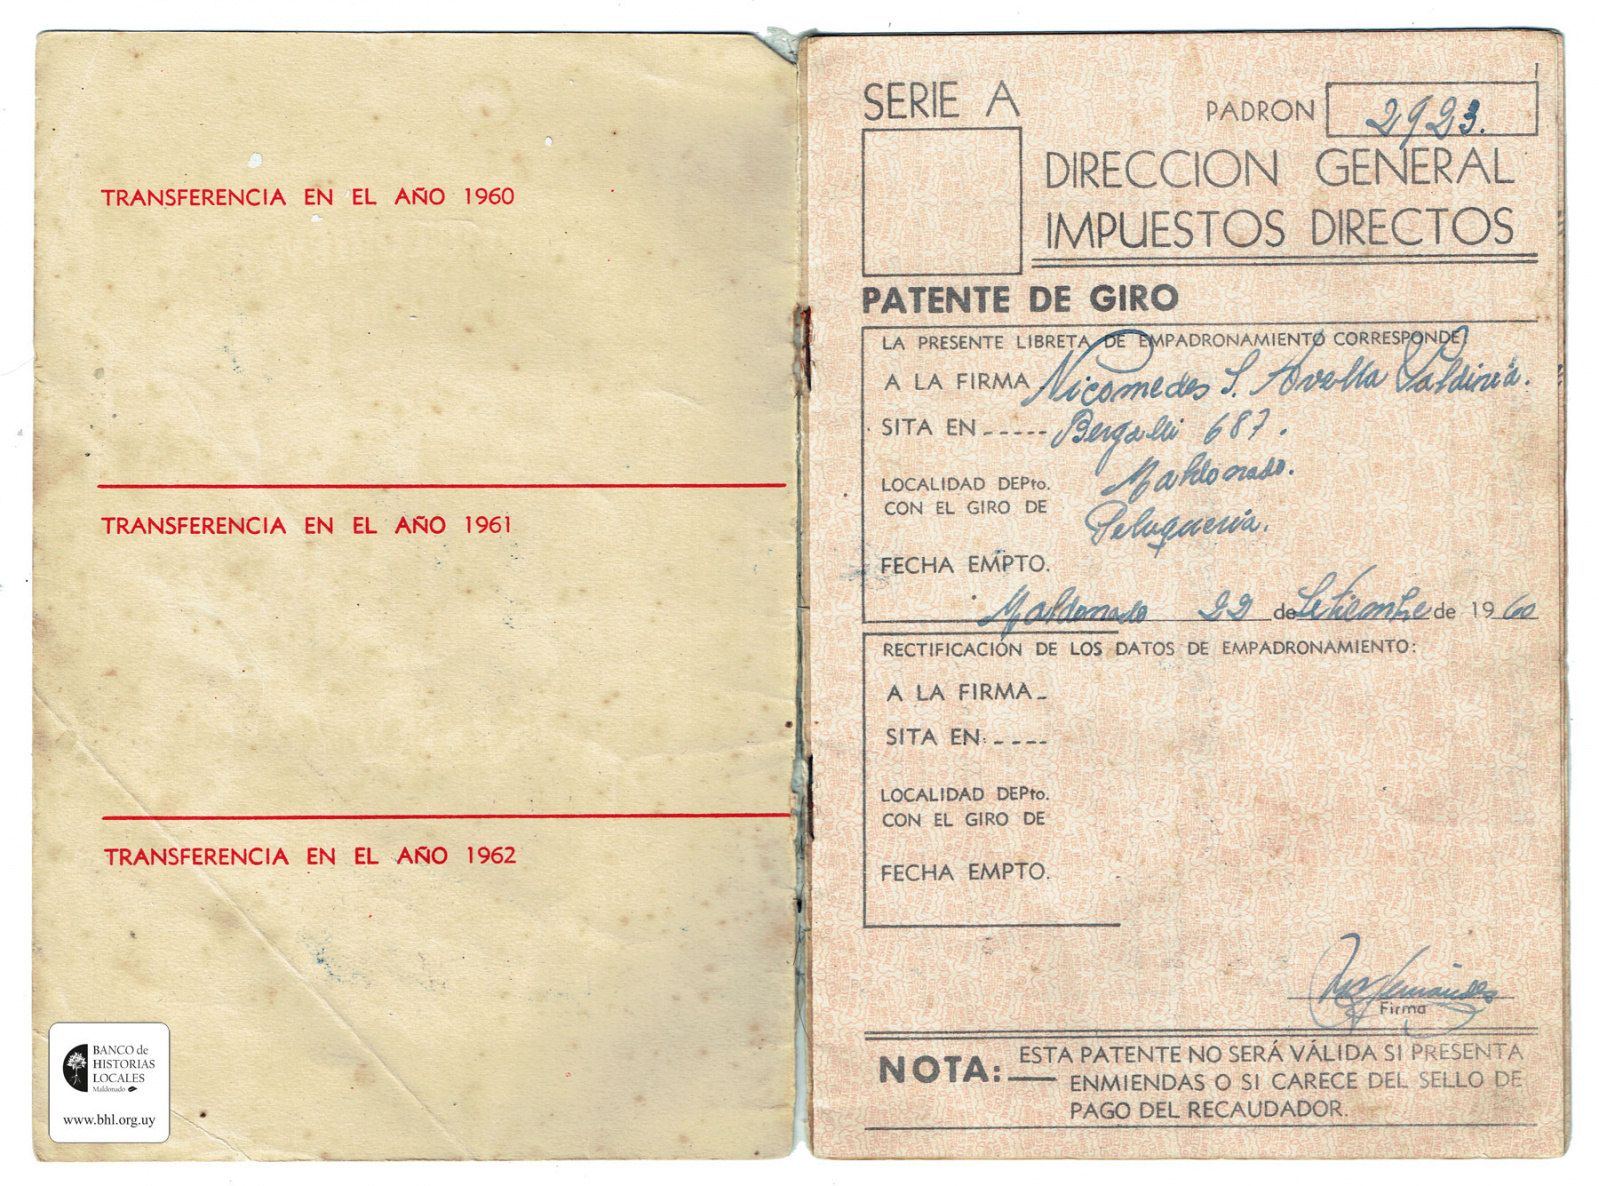 TRANSFERENCIA EN EL AÑO 1960
TRANSFERENCIA EN EL AÑO 1961
TRANSFERENCIA EN EL AÑO 1962
BANCO de
HISTORIAS
LOCALES
Maldonado
www.bhl.org.uy
SERIE A
PADRON 2923.
DIRECCION GENERAL
IMPUESTOS DIRECTOS
PATENTE DE GIRO
LA PRESENTE LIBRETA DE EMPADRONAMIENTO CORRESPONDE:
A LA FIRMA Nicomedes S. Avella
SITA EN ----- 687.
LOCALIDAD DEPto. Maldonado.
CON EL GIRO DE Peluqueria.
FECHA EMPTO.
Maldonado 22 de Setiembre de 1960
RECTIFICACIÓN DE LOS DATOS DE EMPADRONAMIENTO:
A LA FIRMA -
SITA EN: ----
LOCALIDAD DEPto.
CON EL GIRO DE
FECHA EMPTO.
Firma
NOTA: ESTA PATENTE NO SERÁ VÁLIDA SI PRESENTA
ENMIENDAS O SI CARECE DEL SELLO DE
PAGO DEL RECAUDADOR.